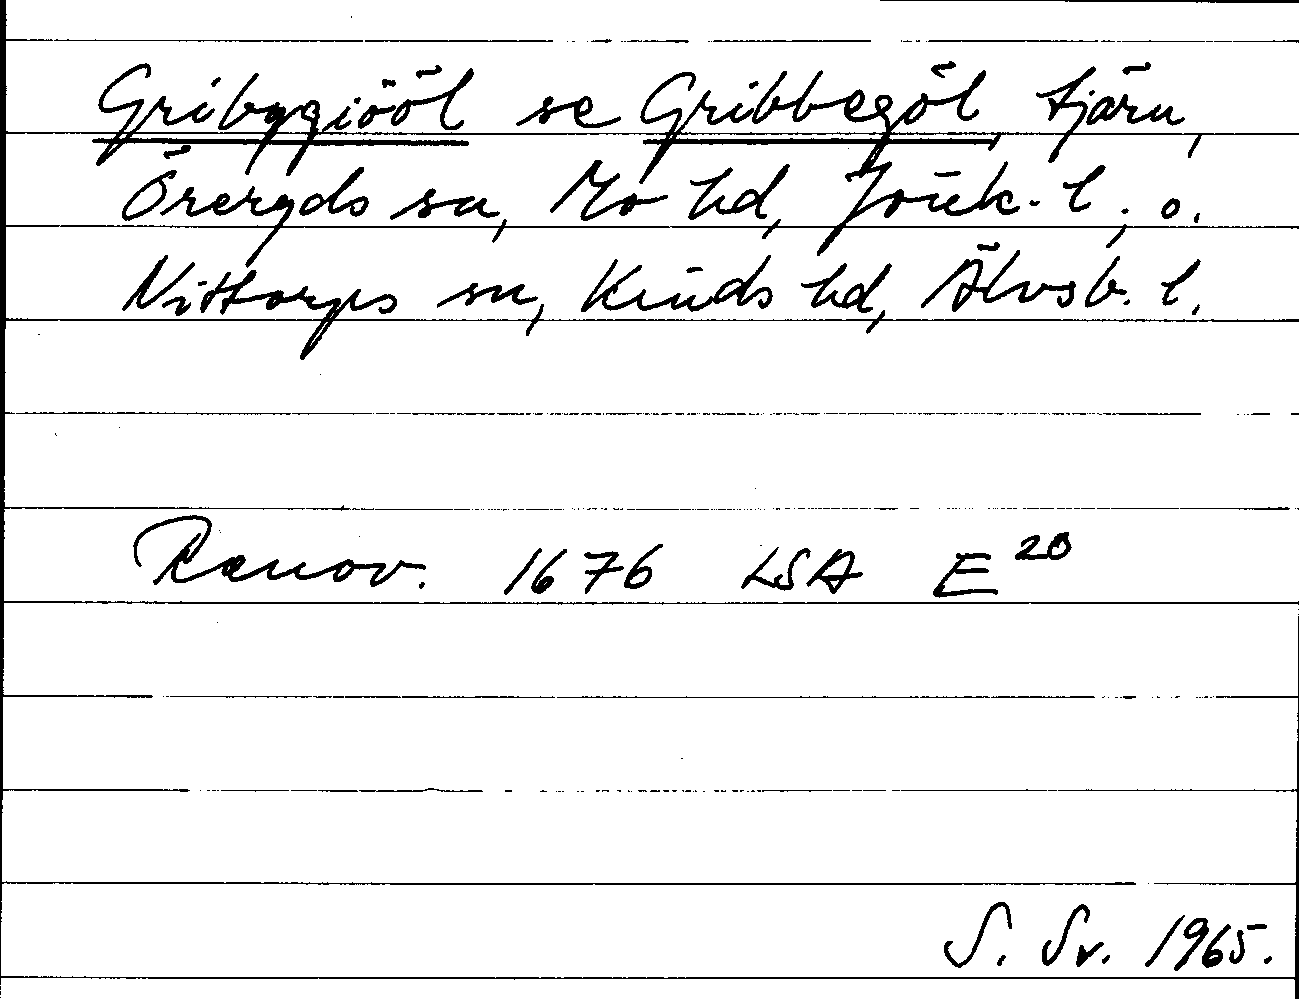 Gribygiööl se Gribbegöl, tjärn,
Öreryds sn, Mo hd, Jönk. l. o.
Nittorps sn, Kinds hd, Älvsb. l.
Ranov. 1676 LSA E 20
S. Sv. 1965.